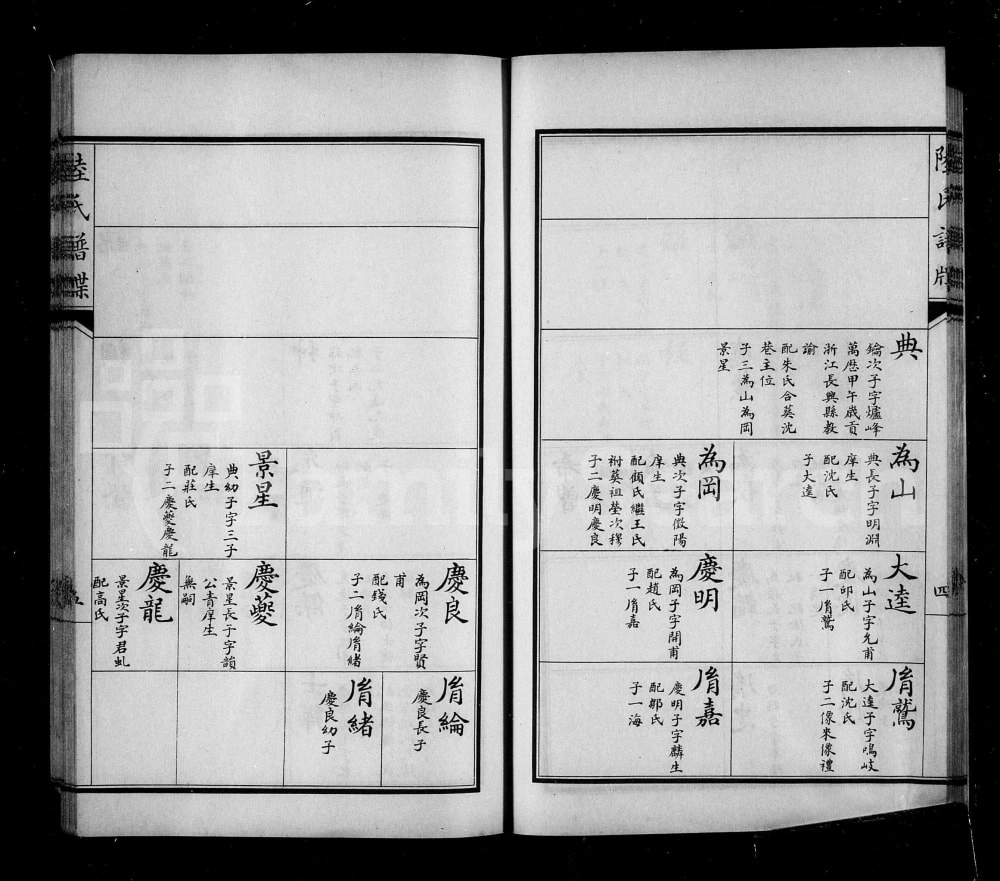 陸氏譜牒
四
典
錀次子字爐峰
萬厯甲午歲貢
浙江長興縣教
諭
配朱氏合葬沈
巷主位
子三為山為岡
景星
為山
典長子字明淵
庠生
配沈氏
子大逵
為岡
典次子字徵陽
庠生
配顧氏繼王氏
祔葬祖塋次穆
子二慶明慶良
大逵
為山子字允甫
配邱氏
子一胤鷟
慶明
為岡子字開甫
配趙氏
子一胤嘉
胤鷟
大逵子字鳴岐
配沈氏
子二像來像禮
胤嘉
慶明子字麟生
配鄒氏
子一海
景星
典幼子字三子
庠生
配莊氏
子二慶夔慶龍
慶良
為岡次子字賢
甫
配錢氏
子二胤綸胤緒
慶夔
景星長子字韻
公青庠生
無嗣
慶龍
景星次子字君虬
配高氏
胤綸
慶良長子
胤緒
慶良幼子
陸氏譜牒
五